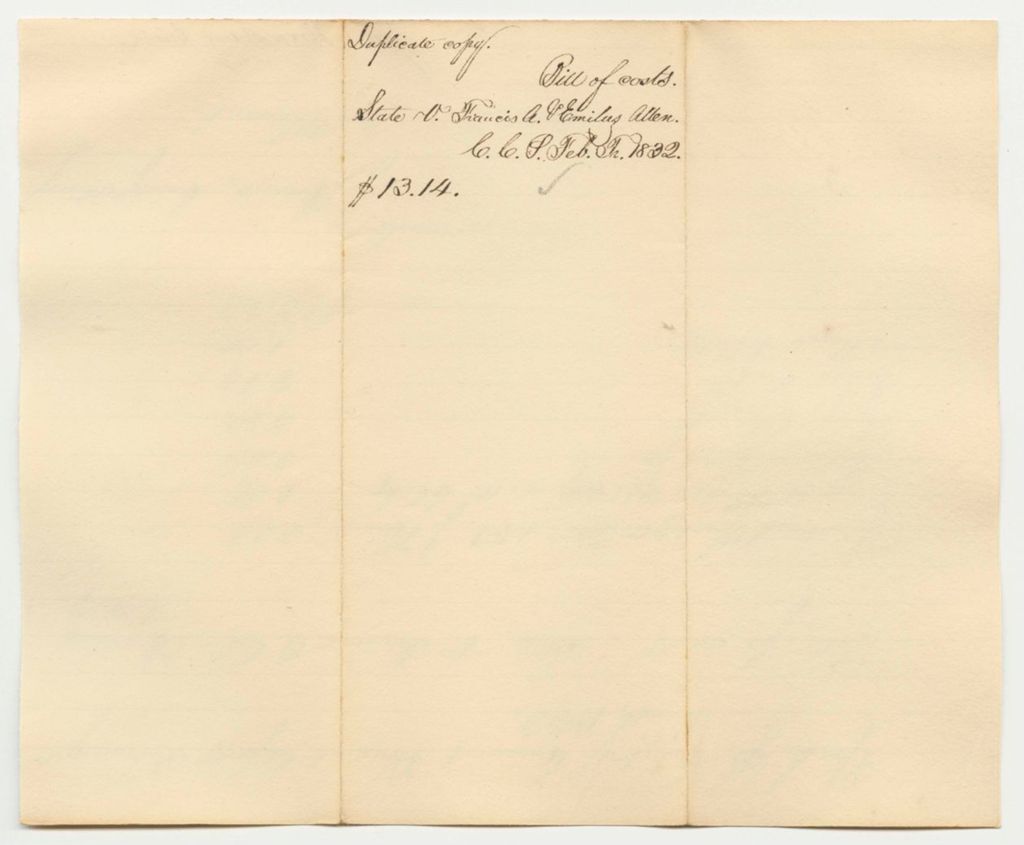 Duplicate copy.
Bill of costs.
State v. Francis A. & Emilus Allen.
C. C. P. Feb. Th. 1832.
$13.14.